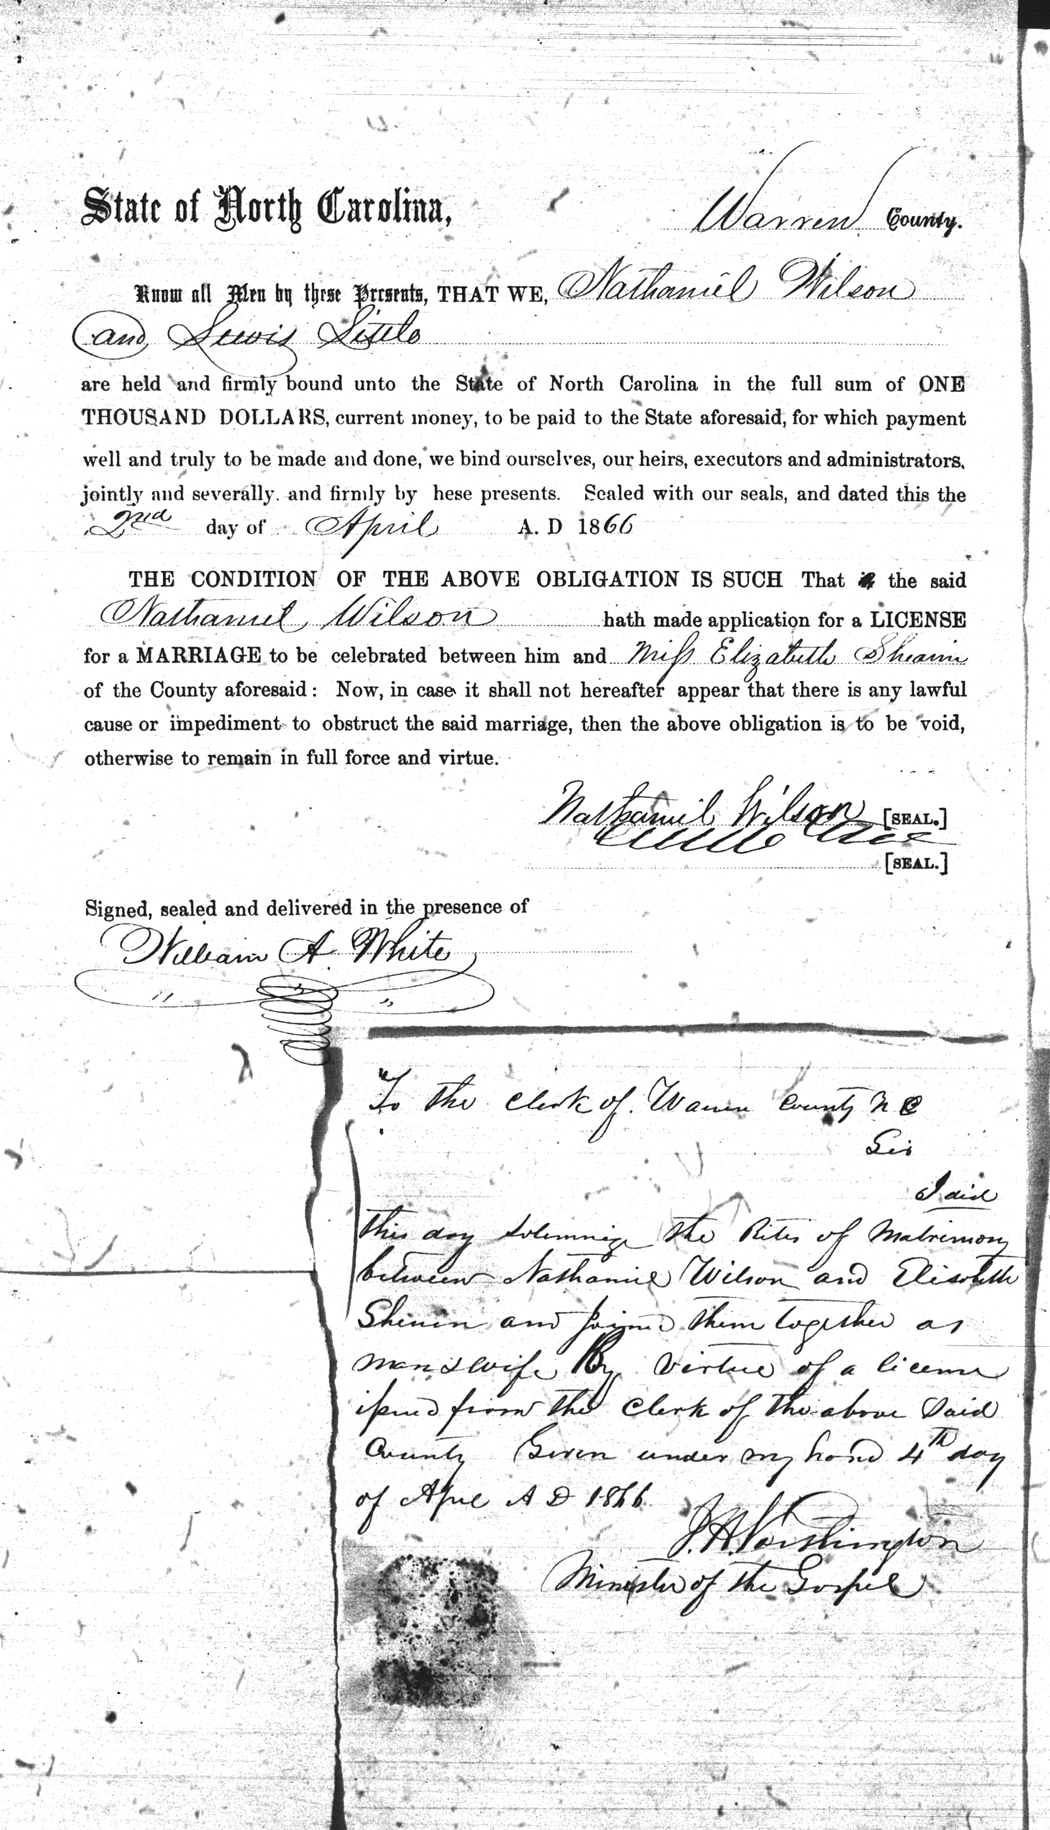 State of North Carolina, Warren County.
Know all Men by these Presents, THAT WE, Nathaniel Wilson
and Lewis Little
are held and firmly bound unto the State of North Carolina in the full sum of ONE
THOUSAND DOLLARS, current money, to be paid to the State aforesaid, for which payment
well and truly to be made and done, we bind ourselves, our heirs, executors and administrators,
jointly and severally, and firmly by hese presents. Sealed with our seals, and dated this the
2nd day of April A. D 1866
THE CONDITION OF THE ABOVE OBLIGATION IS SUCH That the said
Nathaniel Wilson hath made application for a LICENSE
for a MARRIAGE to be celebrated between him and Miss Elizabeth Shearin
of the County aforesaid: Now, in case it shall not hereafter appear that there is any lawful
cause or impediment to obstruct the said marriage, then the above obligation is to be void,
otherwise to remain in full force and virtue.
Nathaniel Wilson [SEAL.]
[SEAL.]
Signed, sealed and delivered in the presence of
William A. White
To the Clerk of Warren County N C
Sir
I did
this day solemnize the Rites of Matrimony
between Nathaniel Wilson and Elisabeth
Shearin and joined them together as
man & wife By virtue of a license
issued from the Clerk of the above Said
County Given under my hand 4th day
of April A D 1866
Minister of the Gospel